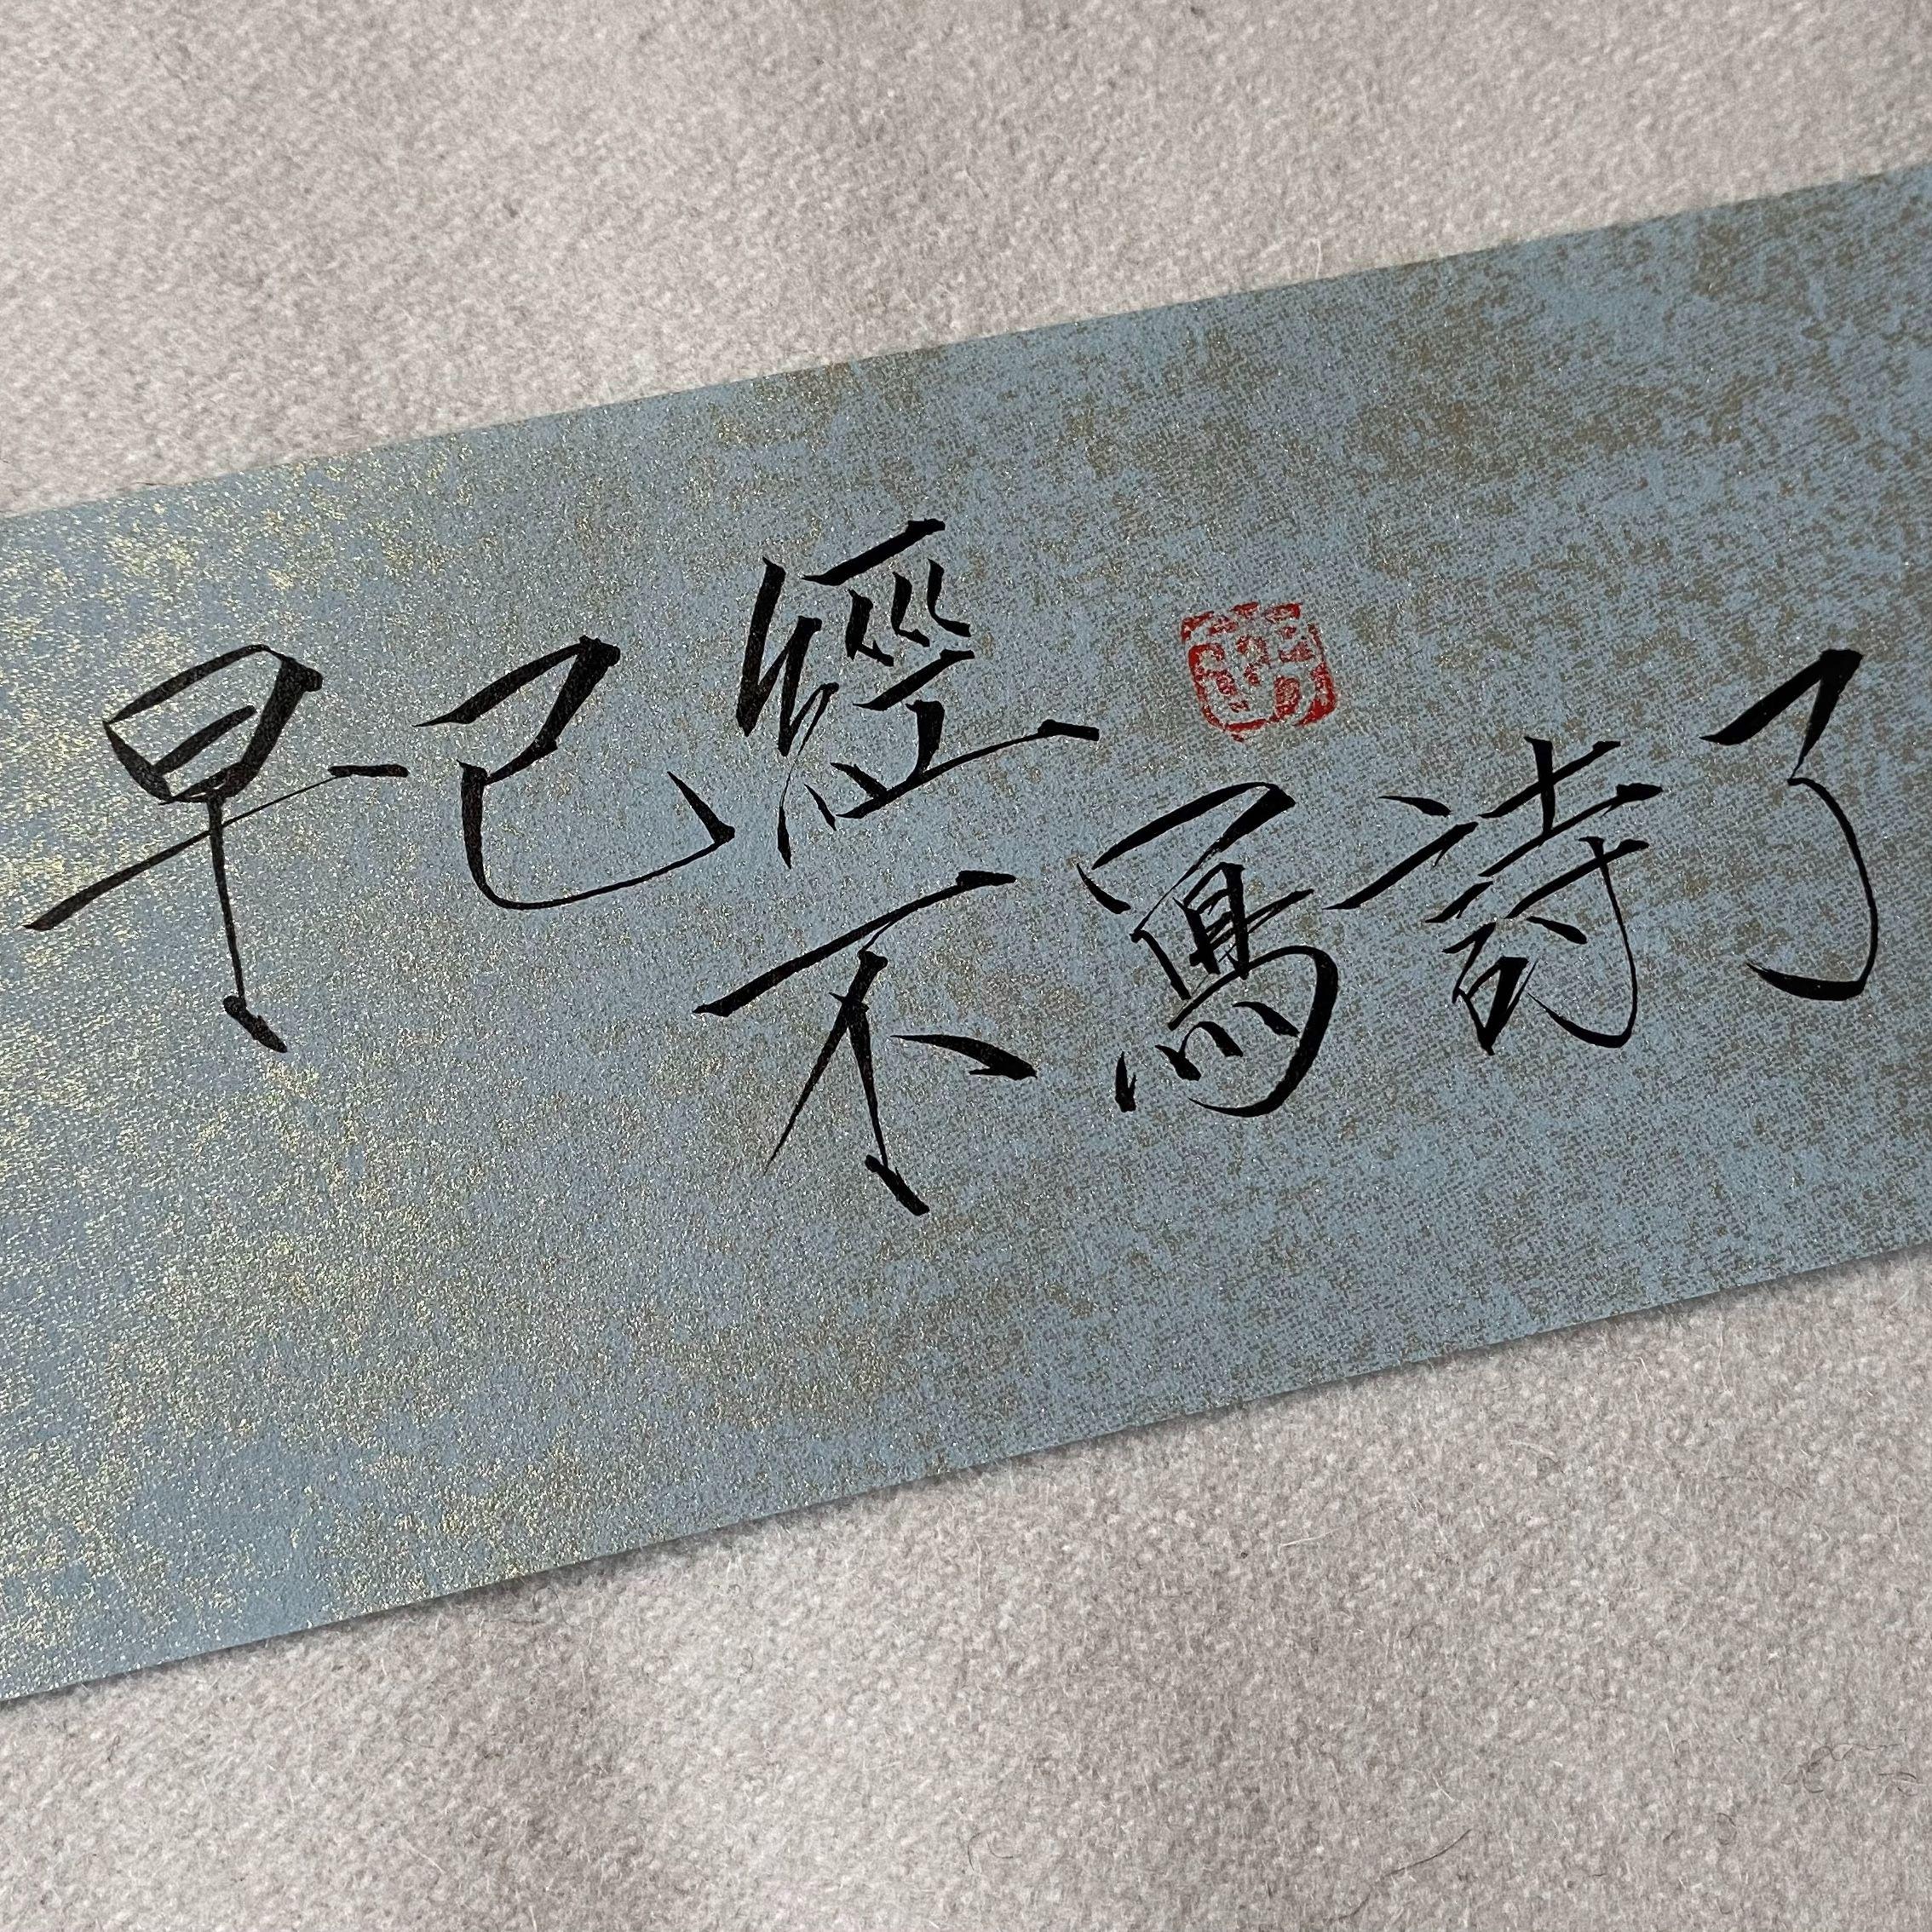 早已經
不寫詩了